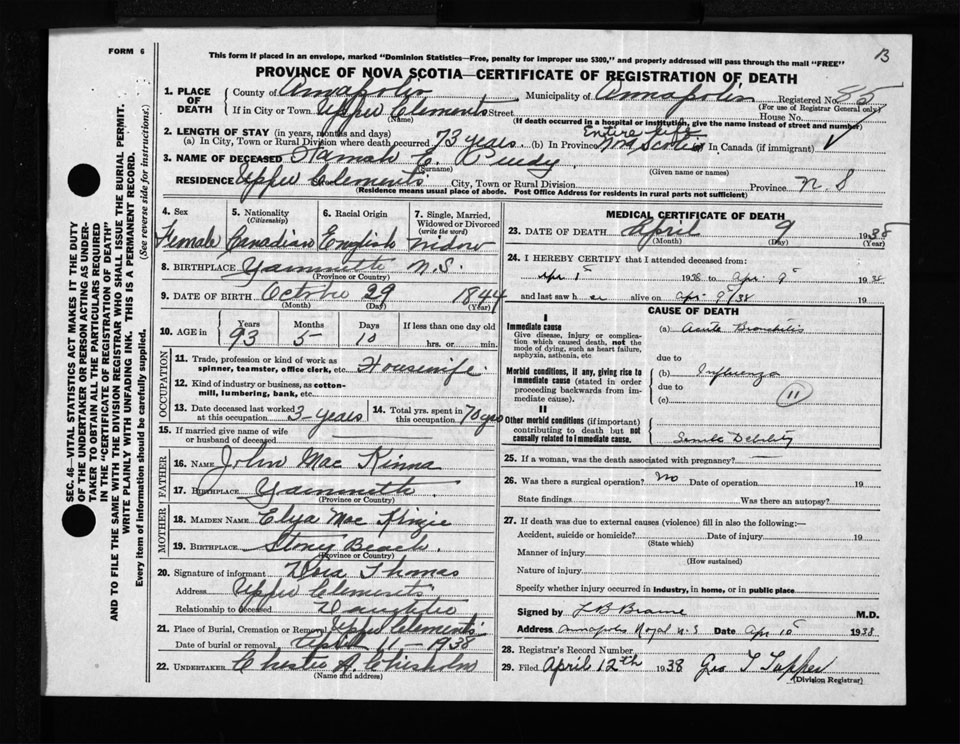 FORM 6
This form if placed in an envelope, marked "Dominion Statistics—Free, penalty for improper use $300," and properly addressed will pass through the mail "FREE"
B
PROVINCE OF NOVA SCOTIA—CERTIFICATE OF REGISTRATION OF DEATH
1. PLACE OF DEATH
County of Annapolis Municipality of Annapolis Registered No. 85
(For use of Registrar General only)
If in City or Town Upper Clements Street House No.
(Name) (If death occurred in a hospital or institution, give the name instead of street and number)
2. LENGTH OF STAY (in years, months and days)
(a) In City, Town or Rural Division where death occurred 73 years. (b) In Province Entire life Nova Scotia In Canada (if immigrant)
3. NAME OF DECEASED Hannah E. Purdy
(Surname) (Given name or names)
RESIDENCE Upper Clements City, Town or Rural Division Province N S
(Residence means usual place of abode. Post Office Address for residents in rural parts not sufficient)
4. Sex
Female
5. Nationality
(Citizenship)
Canadian
6. Racial Origin
English
7. Single, Married, Widowed or Divorced
(write the word)
Widow
8. BIRTHPLACE Yarmouth N.S.
(Province or Country)
9. DATE OF BIRTH October 29 1844
(Month) (Day) (Year)
10. AGE in
Years Months Days If less than one day old
93 5 10 hrs. or min.
OCCUPATION
11. Trade, profession or kind of work as spinner, teamster, office clerk, etc. Housewife.
12. Kind of industry or business, as cotton-mill, lumbering, bank, etc.
13. Date deceased last worked at this occupation 3 years
14. Total yrs. spent in this occupation 70 yrs
15. If married give name of wife or husband of deceased
FATHER
16. NAME John Mac Kinna
17. BIRTHPLACE Yarmouth.
(Province or Country)
MOTHER
18. MAIDEN NAME Elya Mac Kinzie
19. BIRTHPLACE Stoney Beach.
(Province or Country)
20. Signature of informant Dora Thomas
Address Upper Clements
Relationship to deceased Daughter
21. Place of Burial, Cremation or Removal Upper Clements
Date of burial or removal April 1938
22. UNDERTAKER Chester A. Chisholm
(Name and address)
MEDICAL CERTIFICATE OF DEATH
23. DATE OF DEATH April 9 1938
(Month) (Day) (Year)
24. I HEREBY CERTIFY that I attended deceased from:
Apr 1st 1938 to Apr 9th 1938
and last saw h er alive on Apr 9/38
CAUSE OF DEATH
I
Immediate cause
Give disease, injury or complication which caused death, not the mode of dying, such as heart failure, asphyxia, asthenia, etc
(a) Acute Bronchitis
due to
Morbid conditions, if any, giving rise to immediate cause (stated in order proceeding backwards from immediate cause).
(b) Influenza
due to
(c)
11
II
Other morbid conditions (if important) contributing to death but not causally related to immediate cause.
Senile Debility
25. If a woman, was the death associated with pregnancy?
26. Was there a surgical operation? No Date of operation 19
State findings Was there an autopsy?
27. If death was due to external causes (violence) fill in also the following:—
Accident, suicide or homicide? Date of injury 19
(State which)
Manner of injury
(How sustained)
Nature of injury
Specify whether injury occurred in industry, in home, or in public place
Signed by L B Braine M.D.
Address Annapolis Royal N.S Date Apr 10 1938
28. Registrar's Record Number
29. Filed April 12th 1938 Geo T Tupper
(Division Registrar)
SEC. 46—VITAL STATISTICS ACT MAKES IT THE DUTY
OF THE UNDERTAKER OR PERSON ACTING AS UNDER-
TAKER TO OBTAIN ALL THE PARTICULARS REQUIRED
IN THE "CERTIFICATE OF REGISTRATION OF DEATH"
AND TO FILE THE SAME WITH THE DIVISION REGISTRAR WHO SHALL ISSUE THE BURIAL PERMIT.
WRITE PLAINLY WITH UNFADING INK. THIS IS A PERMANENT RECORD.
Every item of information should be carefully supplied. (See reverse side for instructions.)